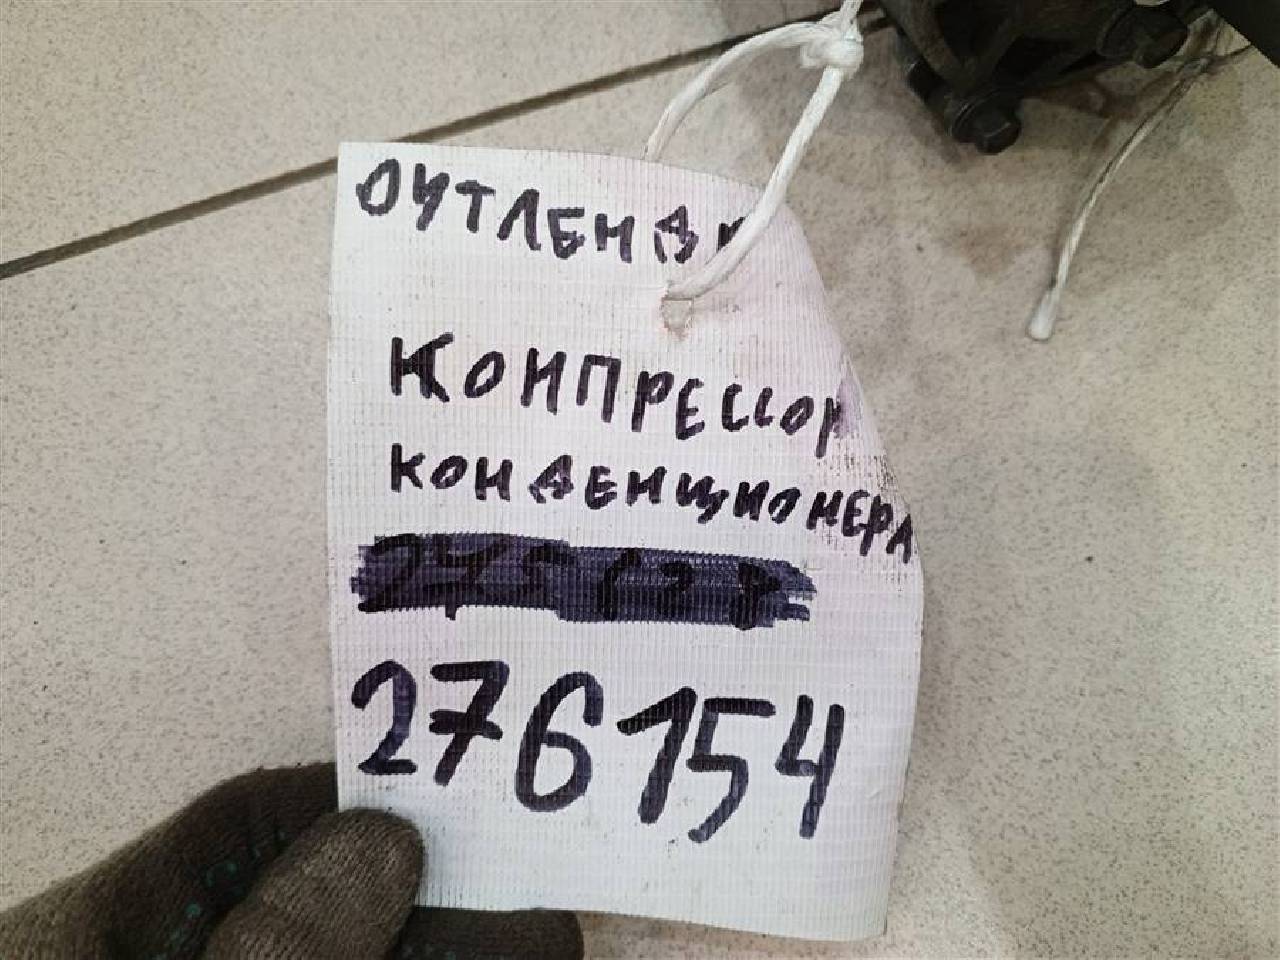 ОУТЛЕНДЕР
КОНПРЕССОР
КОНДЕНЦИОНЕРА
276154